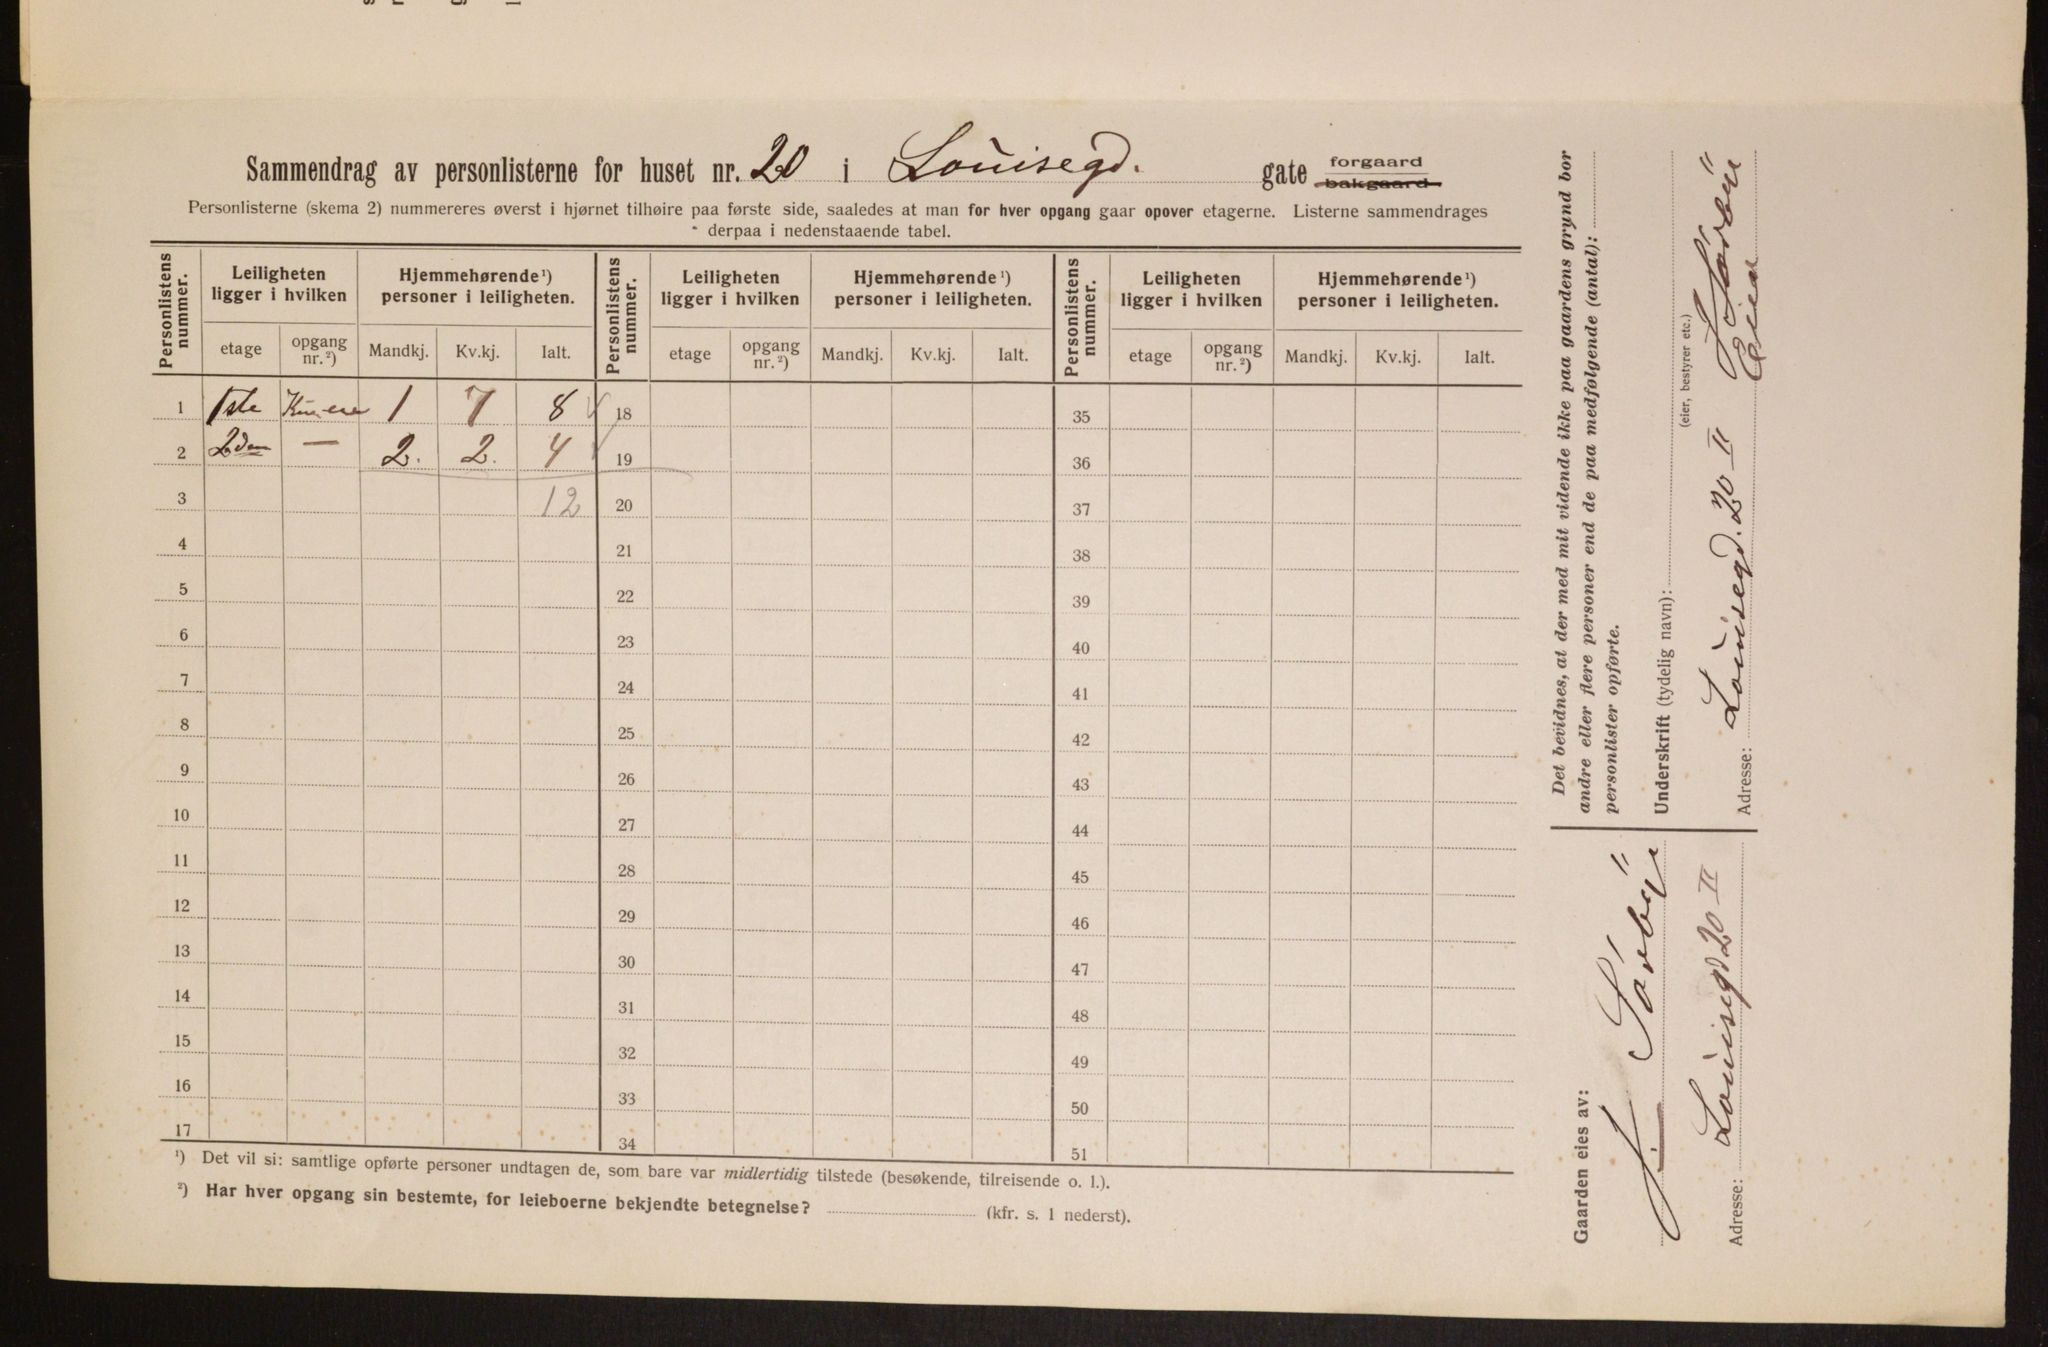 Sammendrag av personlisterne for huset nr. 20 i Louisegd. gate forgaard bakgaard
Personlisterne (skema 2) nummereres øverst i hjørnet tilhøire paa første side, saaledes at man for hver opgang gaar opover etagerne. Listerne sammendrages
derpaa i nedenstaaende tabel.
Personlistens nummer. Leiligheten ligger i hvilken Hjemmehørende ¹) personer i leiligheten. Personlistens nummer. Leiligheten ligger i hvilken Hjemmehørende ¹) personer i leiligheten. Personlistens nummer. Leiligheten ligger i hvilken Hjemmehørende ¹) personer i leiligheten.
etage opgang nr. ²) Mandkj. Kv.kj. Ialt. etage opgang nr. ²) Mandkj. Kv.kj. Ialt. etage opgang nr. ²) Mandkj. Kv.kj. Ialt.
1 1ste 1 7 8 18 35
2 2den — 2. 2. 4 19 36
3 12 20 37
4 21 38
5 22 39
6 23 40
7 24 41
8 25 42
9 26 43
10 27 44
11 28 45
12 29 46
13 30 47
14 31 48
15 32 49
16 33 50
17 34 51
¹) Det vil si: samtlige opførte personer undtagen de, som bare var midlertidig tilstede (besøkende, tilreisende o. l.).
²) Har hver opgang sin bestemte, for leieboerne bekjendte betegnelse? (kfr. s. 1 nederst).
Det bevidnes, at der med mit vidende ikke paa gaardens grund bor
andre eller flere personer end de paa medfølgende (antal):
personlister opførte.
Underskrift (tydelig navn):
(eier, bestyrer etc.)
Eier
Adresse: Louisegd. 20 II
Gaarden eies av:
Adresse: Louisegd 20 II